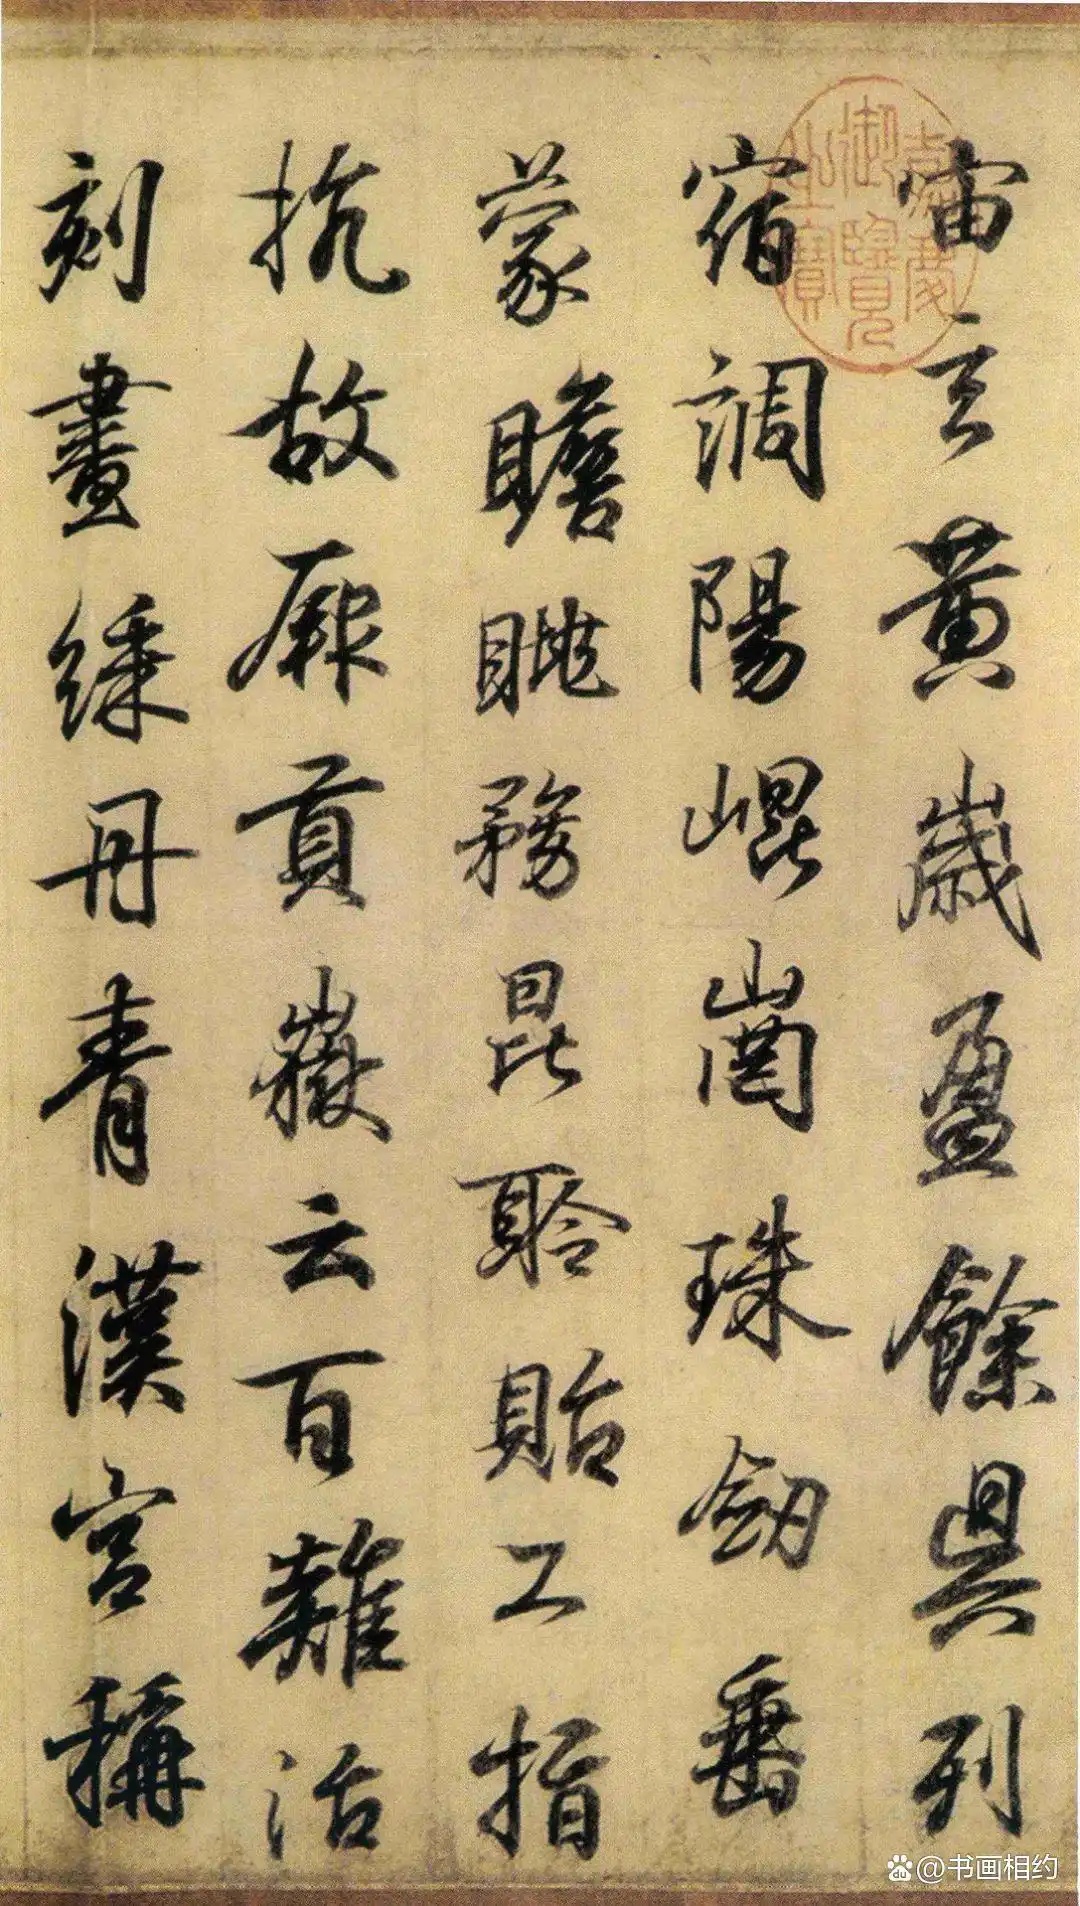 宙玄黄歲盈餘具列
宿調陽崐崗珠劒垂
蒙瞻眺務昆聆貽工指
抗故貢嶽云百難活
刻畫綵丹青漢宮稱
嘉慶
御覽
之寶
du @书画相约